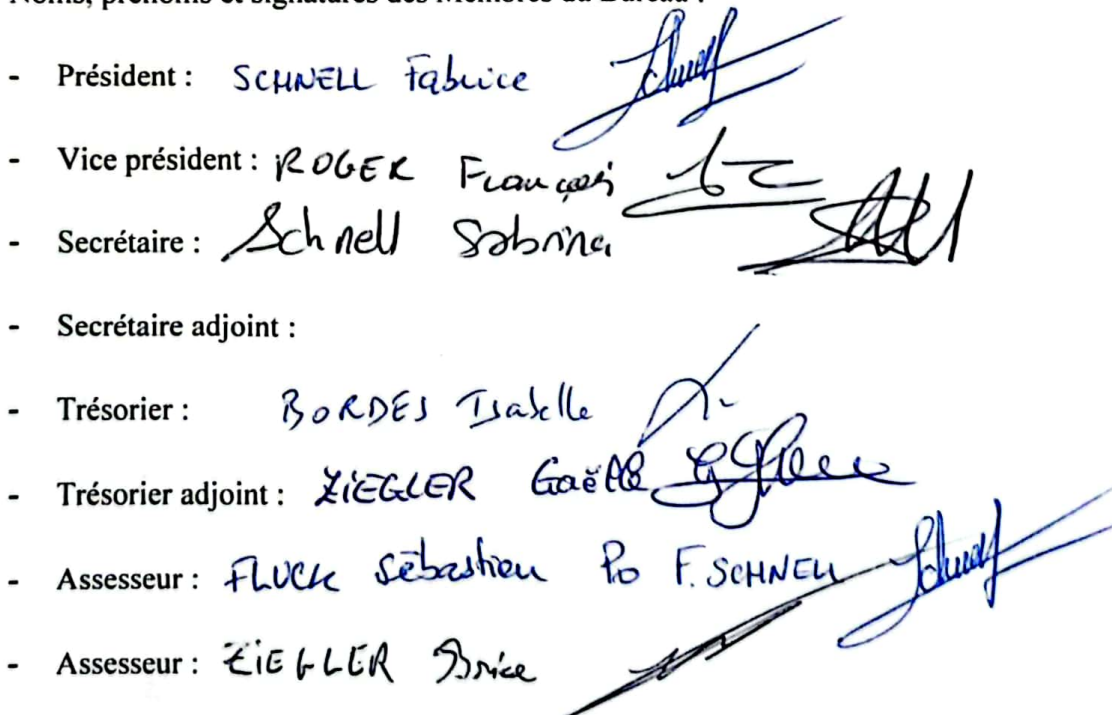 Noms, prénoms et signatures des Membres du Bureau :
- Président : SCHNELL Fabrice
- Vice président : ROGER François
- Secrétaire : Schnell Sabrina
- Secrétaire adjoint :
- Trésorier : BORDES Isabelle
- Trésorier adjoint : ZIEGLER Gaëlle
- Assesseur : FLUCK Sébastien Po F. SCHNELL
- Assesseur : ZIEGLER Brice